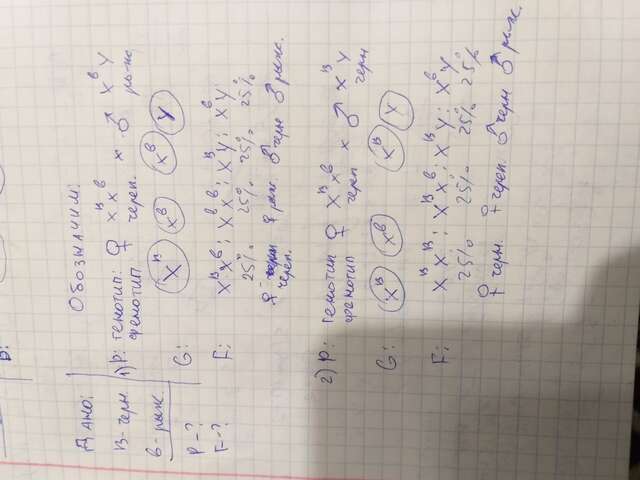 Дано:
В - черн.
в - рыж.
Р - ?
F - ?
Обозначим:
1) Р: генотип: ♀ X^B X^в × ♂ X^в Y
фенотип череп. рыж.
G: X^B X^в X^в Y
F: X^B X^в : X^в X^в : X^B Y : X^в Y
25% 25% 25% 25%
♀ череп. ♀ рыж ♂ черн ♂ рыж.
2) Р: генотип ♀ X^B X^в × ♂ X^B Y
фенотип череп черн
G: X^B X^в X^B Y
F: X^B X^B : X^B X^в : X^B Y : X^в Y
25% 25% 25% 25%
♀ черн. ♀ череп. ♂ черн ♂ рыж.